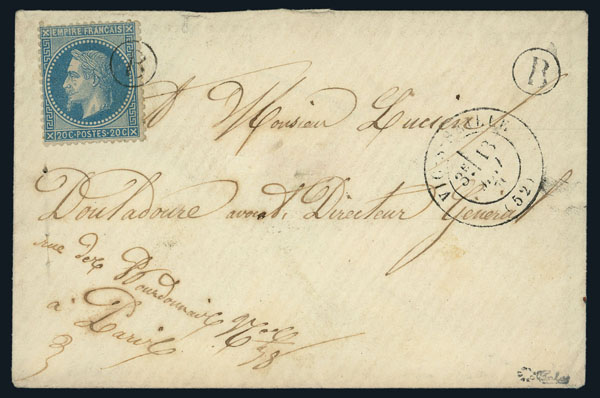 EMPIRE FRANÇAIS
20C·POSTES·20C
R
R
Monsieur Lucien
Doutadoure avocat, Directeur General
rue des Bourdonnais
à Paris
(52)
13